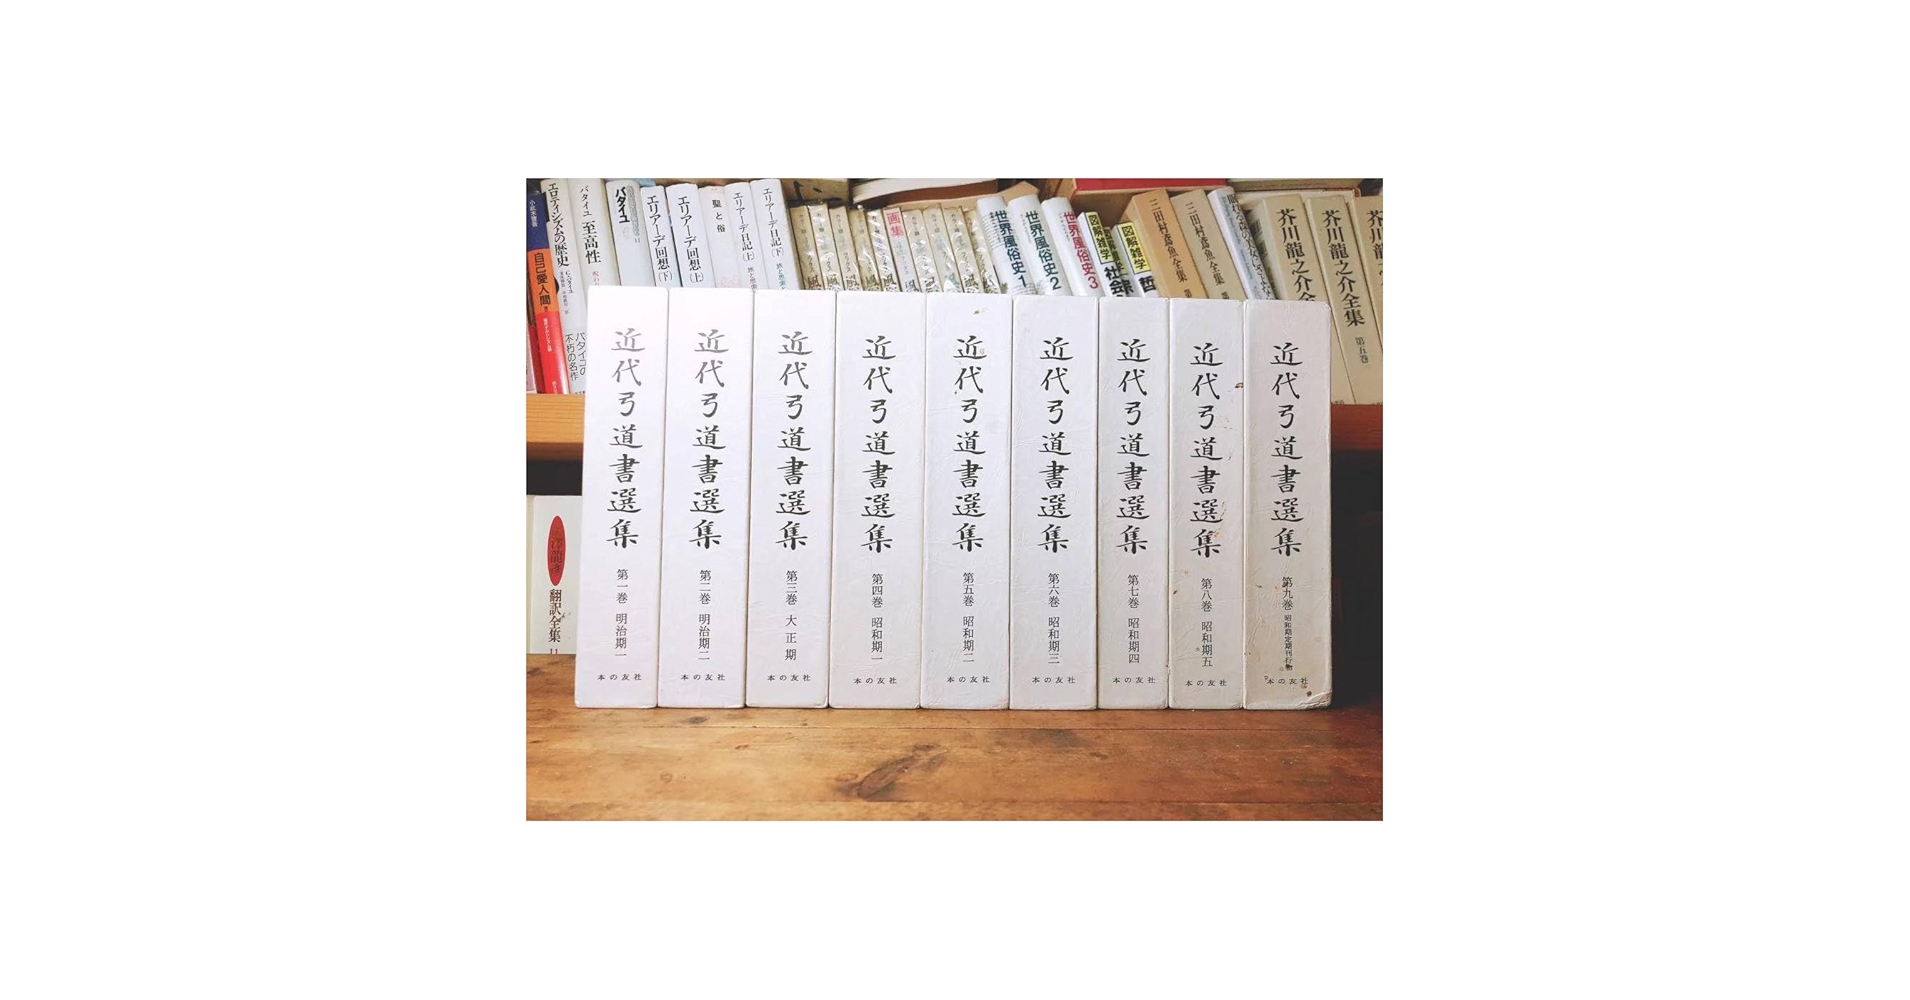 自己愛人間
エロティシズムの歴史
バタイユの
不朽の名作
バタイユ 至高性
バタイユ
エリアーデ回想(下)
エリアーデ回想(上)
聖と俗
エリアーデ日記(上)
エリアーデ日記(下)
画集
世界風俗史1
世界風俗史2
世界風俗史3
図解雑学
社会
図解雑学
哲
三田村鳶魚全集
三田村鳶魚全集
芥川龍之介全集
芥川龍之介全集 第五巻
芥川
翻訳全集 11
近代弓道書選集 第一巻 明治期一
本の友社
近代弓道書選集 第二巻 明治期二
本の友社
近代弓道書選集 第三巻 大正期
本の友社
近代弓道書選集 第四巻 昭和期一
本の友社
近代弓道書選集 第五巻 昭和期二
本の友社
近代弓道書選集 第六巻 昭和期三
本の友社
近代弓道書選集 第七巻 昭和期四
本の友社
近代弓道書選集 第八巻 昭和期五
本の友社
近代弓道書選集 第九巻 昭和期定期刊行物
本の友社